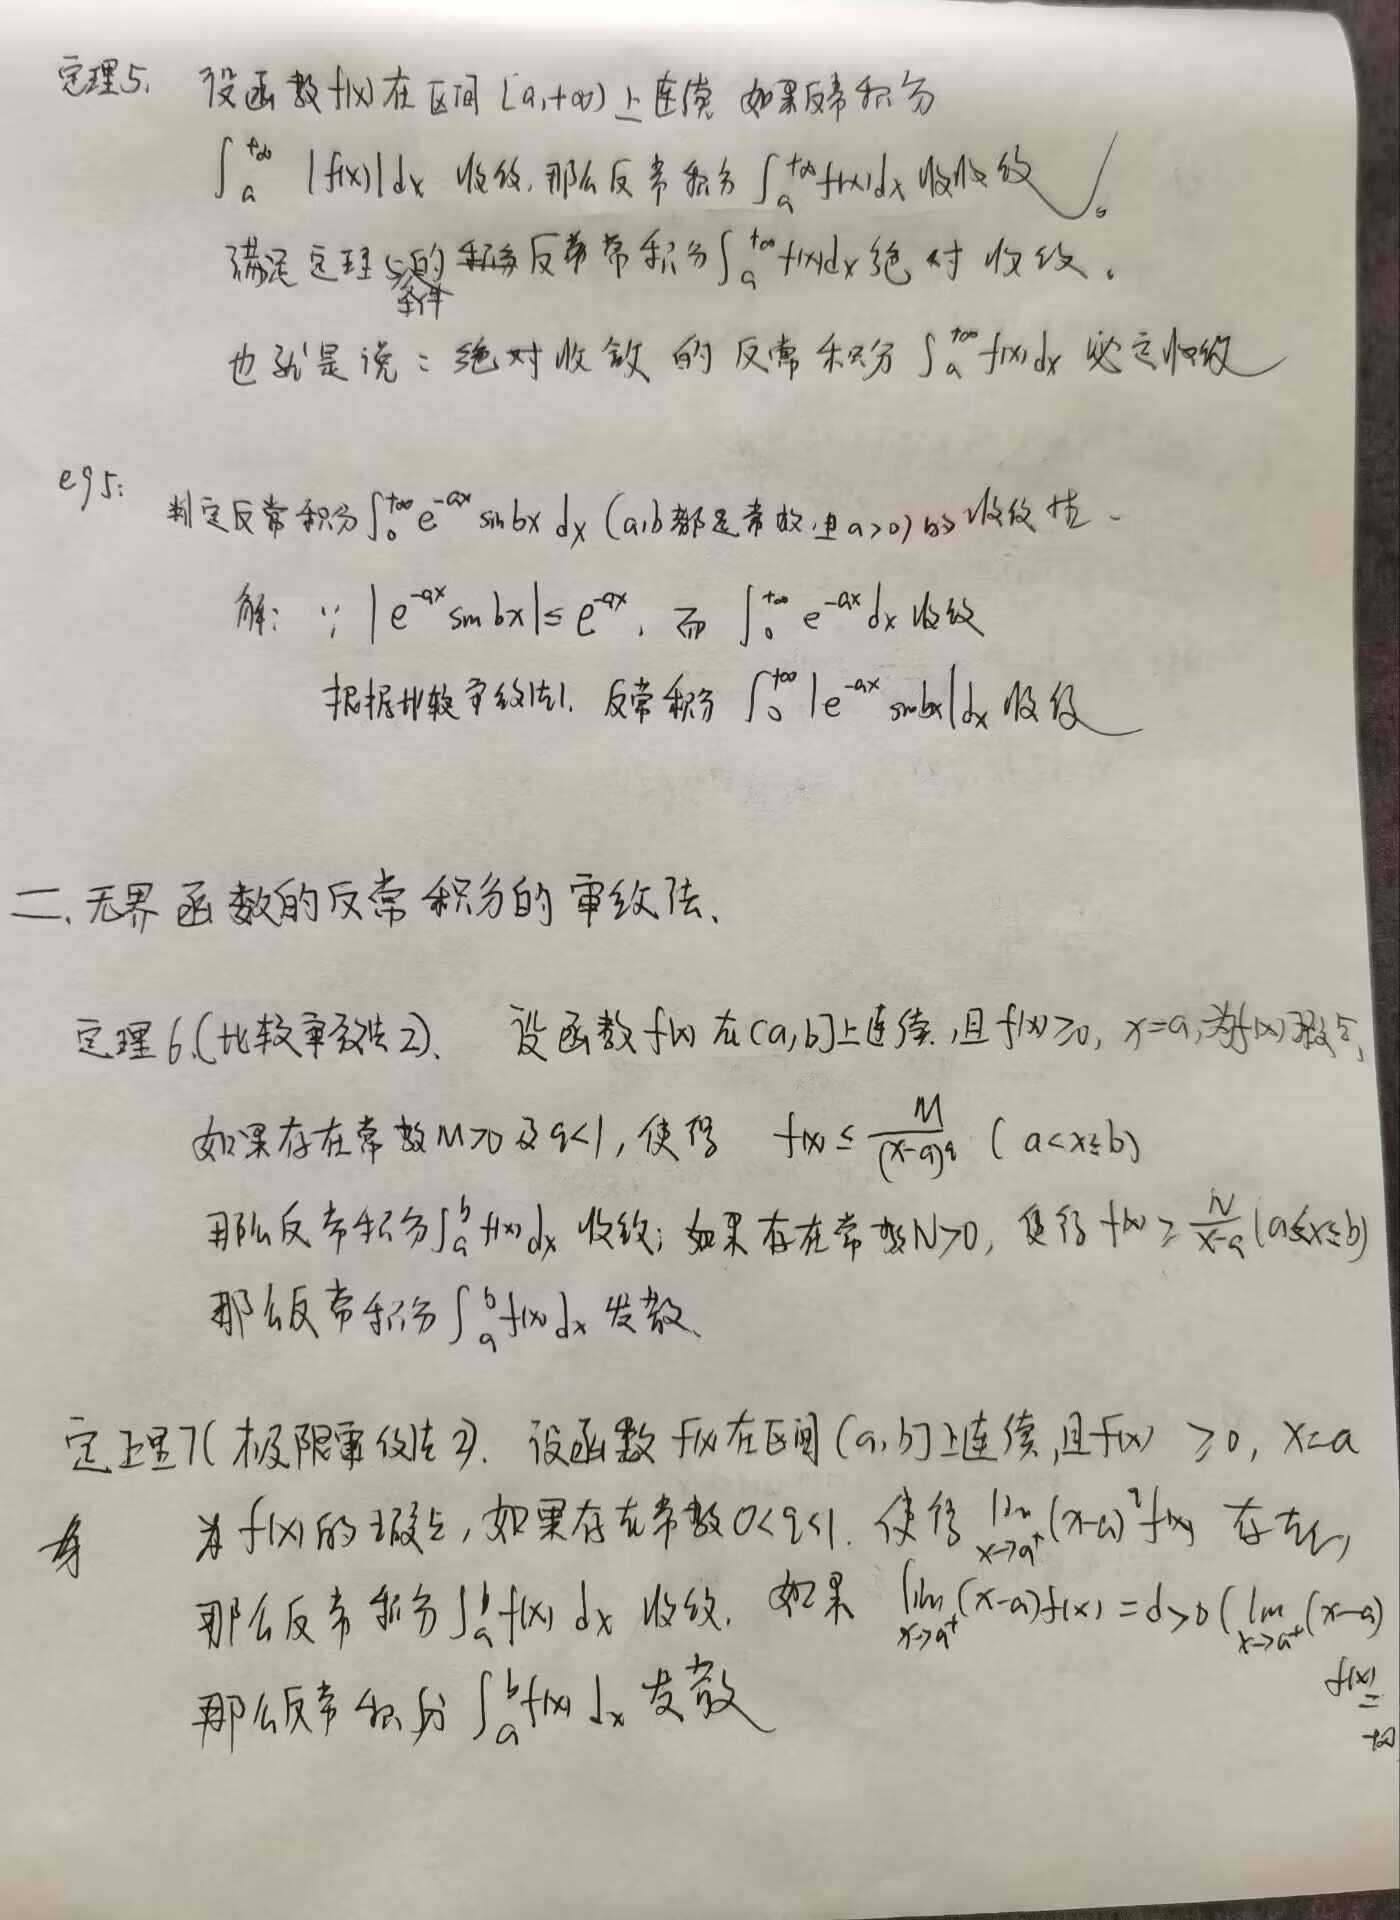 定理5. 设函数f(x)在区间[a,+∞)上连续 如果反常积分
∫_a^{+∞} |f(x)|dx 收敛,那么反常积分∫_a^{+∞}f(x)dx收收敛。
满足定理5的条件反常常积分∫_a^{+∞}f(x)dx绝对收敛。
也就是说:绝对收敛的反常积分∫_a^{+∞}f(x)dx必定收敛
eg5: 判定反常积分∫_0^{+∞}e^{-ax}sinbx dx(a,b都是常数,且a>0)的收敛性.
解:∵|e^{-ax}sin bx|≤e^{-ax},而∫_0^{+∞}e^{-ax}dx收敛
根据比较审敛法1.反常积分∫_0^{+∞}|e^{-ax}sinbx|dx收敛
二、无界函数的反常积分的审敛法、
定理6.(比较审敛法2)、设函数f(x)在(a,b]上连续,且f(x)≥0, x=a,为f(x)瑕点,
如果存在常数M>0及q<1,使得 f(x)≤M/(x-a)^q (a<x≤b)
那么反常积分∫_a^b f(x)dx收敛;如果存在常数N>0,使得f(x)≥N/(x-a)(a<x≤b)
那么反常积分∫_a^b f(x)dx发散、
定理7(极限审敛法2).设函数f(x)在区间(a,b]上连续,且f(x)≥0, x=a
为f(x)的瑕点,如果存在常数0<q<1.使得lim_{x→a^+}(x-a)^q f(x)存在,
那么反常积分∫_a^b f(x)dx收敛.如果lim_{x→a^+}(x-a)f(x)=d>0(lim_{x→a^+}(x-a)
f(x)=+∞
那么反常积分∫_a^b f(x)dx发散